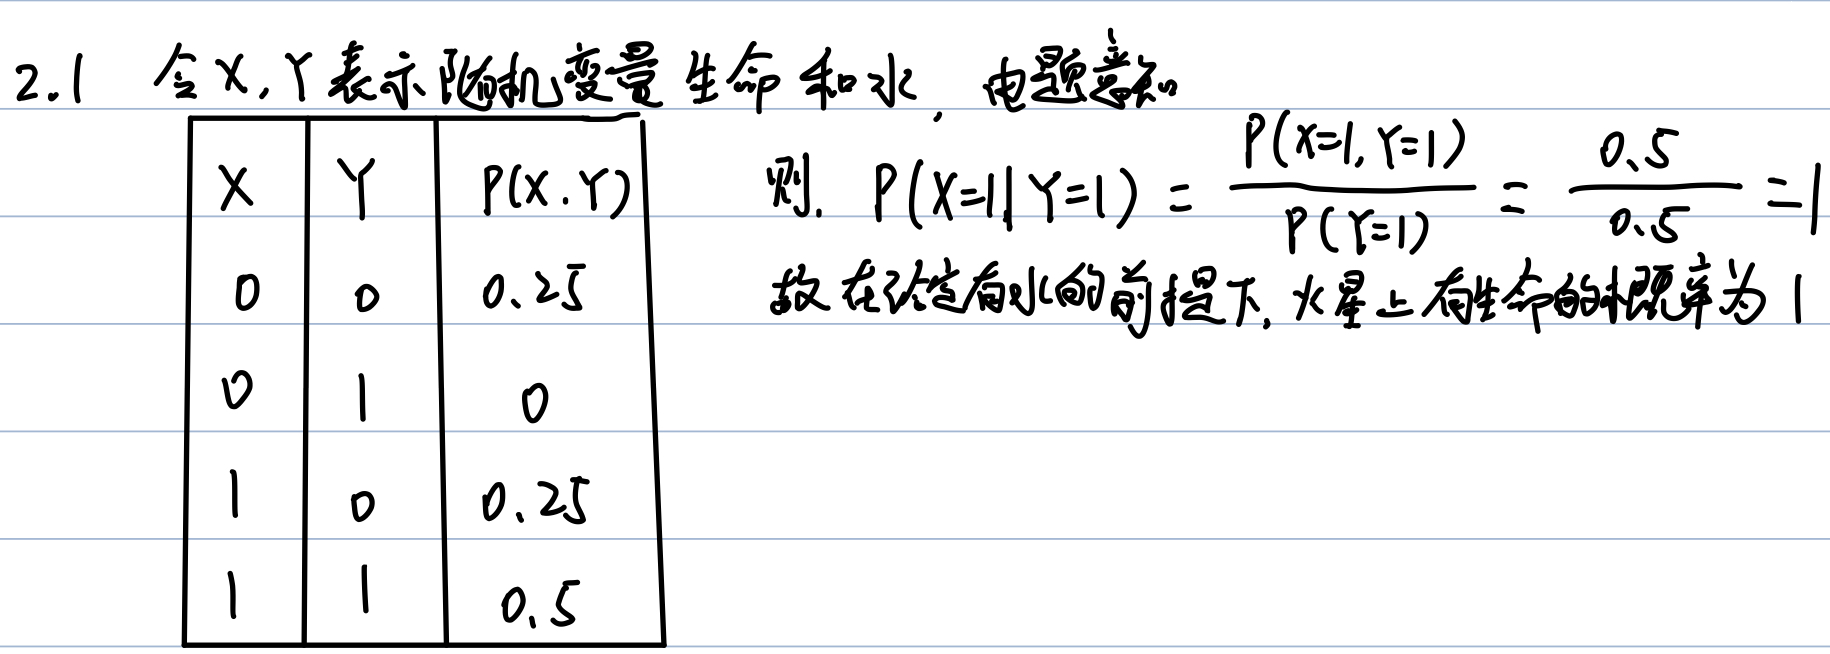 2.1 令X,Y表示随机变量生命和水,由题意知
X Y P(X.Y)
0 0 0.25
0 1 0
1 0 0.25
1 1 0.5
则. P(X=1|Y=1) = P(X=1,Y=1) / P(Y=1) = 0.5 / 0.5 = 1
故在给定有水的前提下,火星上有生命的概率为1